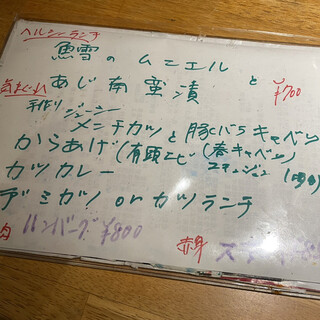 ヘルシーランチ
魚雪のムニエル
気まぐれ あじ南蛮漬と ¥700
手作り ジューシー
メンチカツと豚バラキャベツ
からあげ(有頭エビ(春キャベツ)
カツカレー
デミカツorカツランチ
肉 ハンバーグ ¥800 赤身